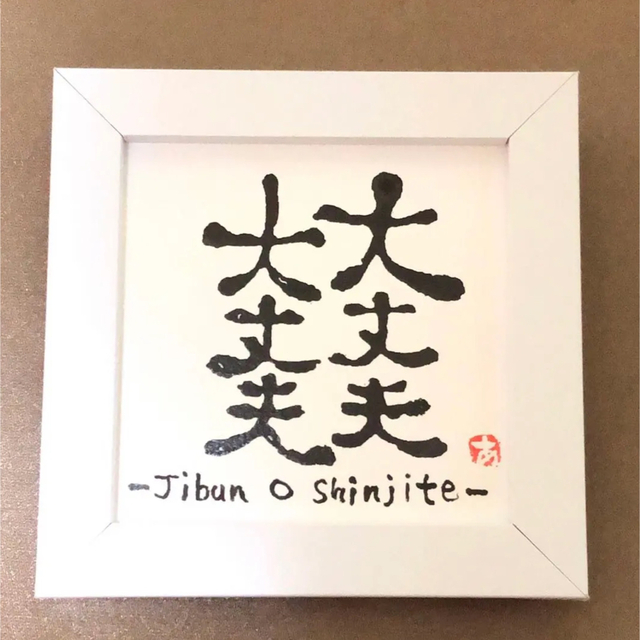 大丈夫
大丈夫
あ
-Jibun O Shinjite-